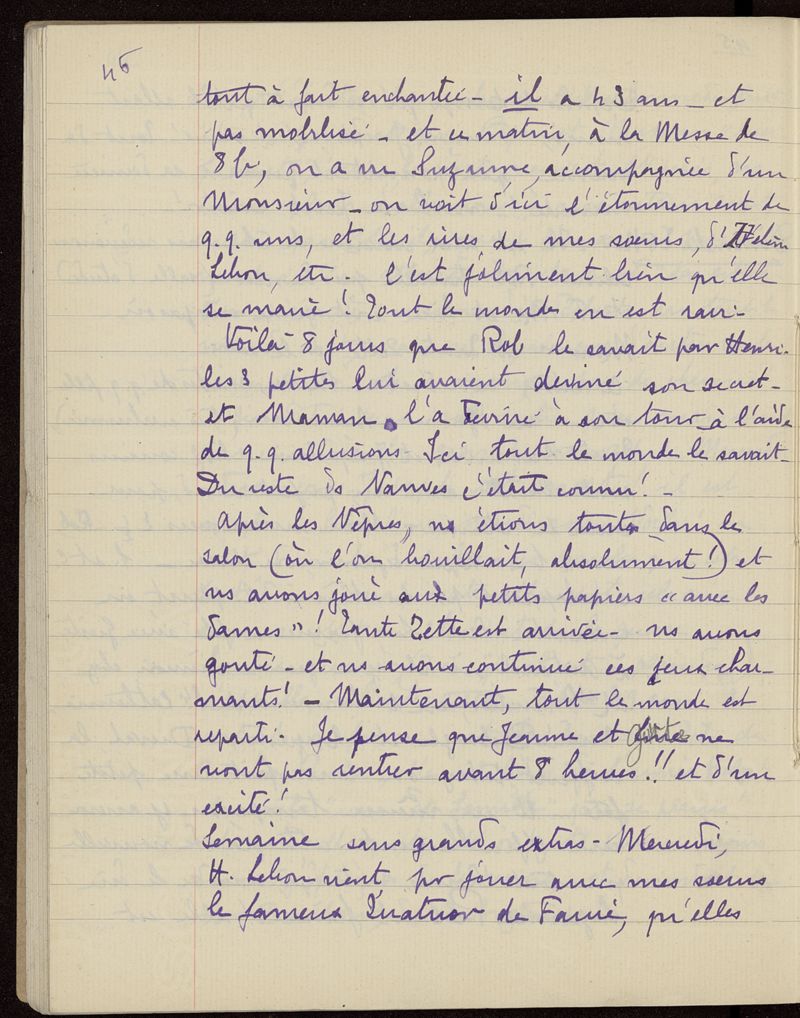 46
tout à fait enchantée - il a 43 ans - et
pas mobilisé - et ce matin, à la Messe de
8h, on a vu Suzanne, accompagnée d'un
Monsieur - on voit d'ici l'étonnement de
q.q. uns, et les rires de mes sœurs, d'Hélène
Lebon, etc - C'est joliment bien qu'elle
se marie! Tout le monde en est ravi -
Voilà 8 jours que Rob le savait par Henri -
les 3 petites lui avaient deviné son secret -
et Maman l'a deviné à son tour - à l'aide
de q.q. allusions - Ici tout le monde le savait -
Du reste ds Vanves c'était connu! -
Après les Vêpres, ns étions toutes dans le
salon (où l'on bouillait, absolument!) et
ns avons joué aux petits papiers "avec les
dames"! Tante Zette est arrivée - ns avons
gouté - et ns avons continué ces jeux char-
mants! - Maintenant, tout le monde est
reparti - Je pense que Jeanne et ne
vont pas rentrer avant 8 heures!! et d'un
excité!
Semaine sans grands extras - Mercredi,
H. Lebon vient pr jouer avec mes sœurs
le fameux Quatuor de Fauré, qu'elles